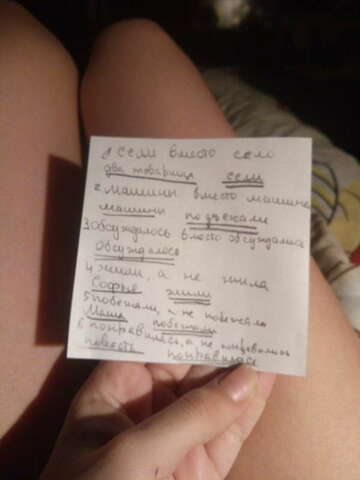 1 сели вместо село
два товарища сели
2 машины вместо машина
машины подъехали
3 обсуждалось вместо обсуждались
обсуждалось
4 жили, а не жила
Софья жили
5 побежали, а не побежала
Маша побежали
6 понравилась, а не понравилось
повесть понравилась